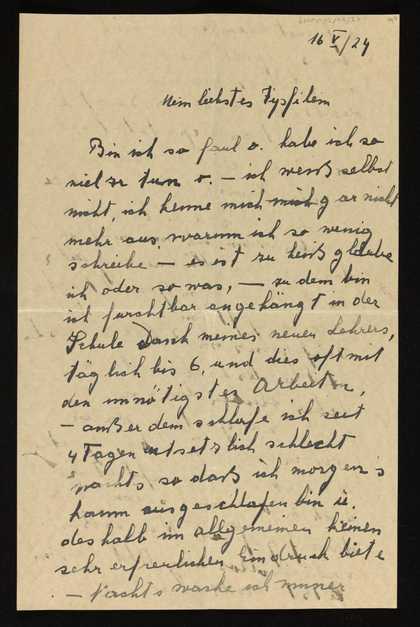 16 V/24
Mein liebstes
Bin ich so faul o. habe ich so
viel zu tun o. – ich weiß selbst
nicht, ich kenne mich mich gar nicht
mehr aus warum ich so wenig
schreibe – es ist zu heiß glaube
ich oder so was, – zu dem bin
ich furchtbar angehängt in der
Schule Dank meines neuen Lehrers,
täglich bis 6, und dies oft mit
den unnötigsten Arbeiten,
– außerdem schlafe ich seit
4 Tagen entsetzlich schlecht
nachts so daß ich morgens
kaum ausgeschlafen bin u.
deshalb im allgemeinen keinen
sehr erfreulichen Eindruck biete
– Nachts wache ich immer